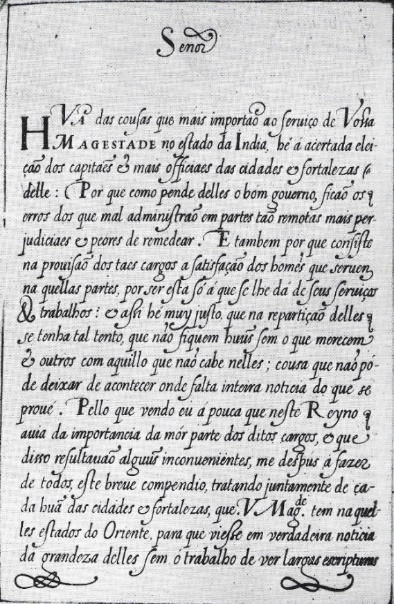 Senor
HVÃ das cousas que mais importão ao seruiço de Vossa
MAGESTADE no estado da India, hé á acertada elei-
ção dos capitaẽs & mais officiaes das cidades & fortalezas
delle: Por que como pende delles o bom governo, ficão os
erros dos que mal administrão em partes tão remotas mais per
judiciaes & peores de remedear. E tambem por que consiste
na prouisão dos taes cargos a satisfação dos homẽs que seruem
na quellas partes, por ser esta só á que se lhe dá de seus seruiços
& trabalhos: & assi hé muy justo, que na repartição delles
se tenha tal tento, que não fiquem huũs sem o que merecem
& outros com aquillo que não cabe nelles; cousa que não pó-
de deixar de acontecer onde falta inteira noticia do que se
proue. Pello que vendo eu á pouca que neste Reyno
auia da importancia da mór parte dos ditos cargos, & que
disso resultauão alguũs inconuenientes, me despus á fazer
de todos, este breue compendio, tratando juntamente de ca-
da huã das cidades & fortalezas, que V. Mag.de tem na quel-
les estados do Oriente, para que viesse em verdadeira noticia
da grandeza delles sem ó trabalho de ver largas escripturas